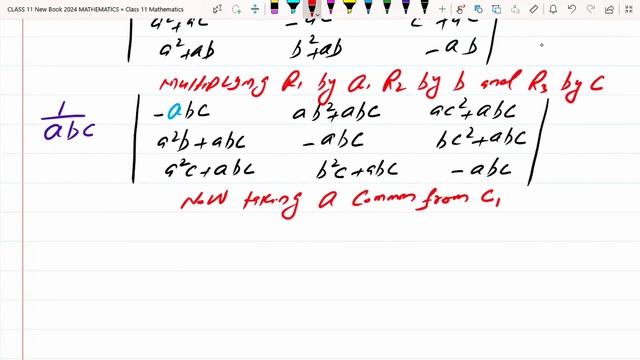 CLASS 11 New Book 2024 MATHEMATICS » Class 11 Mathematics
a²+ac -ac c²+ac
a²+ab b²+ab -ab
Multiplying R₁ by a, R₂ by b and R₃ by c
1/abc
-abc ab²+abc ac²+abc
a²b+abc -abc bc²+abc
a²c+abc b²c+abc -abc
Now taking a common from C₁